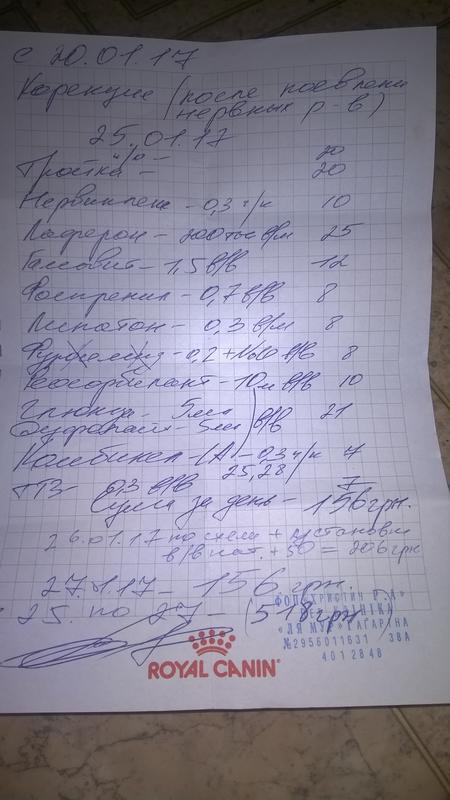 с 20.01.17
Корекция (после появлени
нервных р-в)
25.01.17
20
Тройка - 20
- 0,3 п/к 10
Лаферон - 200 тыс в/м 25
Гамовит - 1,5 в/в 12
Фоспренил - 0,7 в/в 8
Липотон - 0,3 в/м 8
- 0,2 + NaCl в/в 8
Реосорбилакт - 10 м в/в 10
Глюкоза - 5мл
Дуфалайт - 5мл в/в 21
- 0,3 п/к 7
25,28
0,3 в/в 7
Сума за день - 156 грн.
26.01.17 по схеме + установка
в/в кат. + 50 = 206 грн
27.01.17 - 156 грн.
с 25. по 27 - (518 грн)
ФОП
"ЛЯ МУР"
№2956011631 38А
4012848
ROYAL CANIN